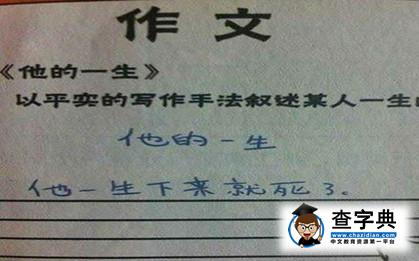 作文
《他的一生》
以平实的写作手法叙述某人一生
他的一生
他一生下来就死了。
查字典
www.chazidian.com
中文教育资源第一平台